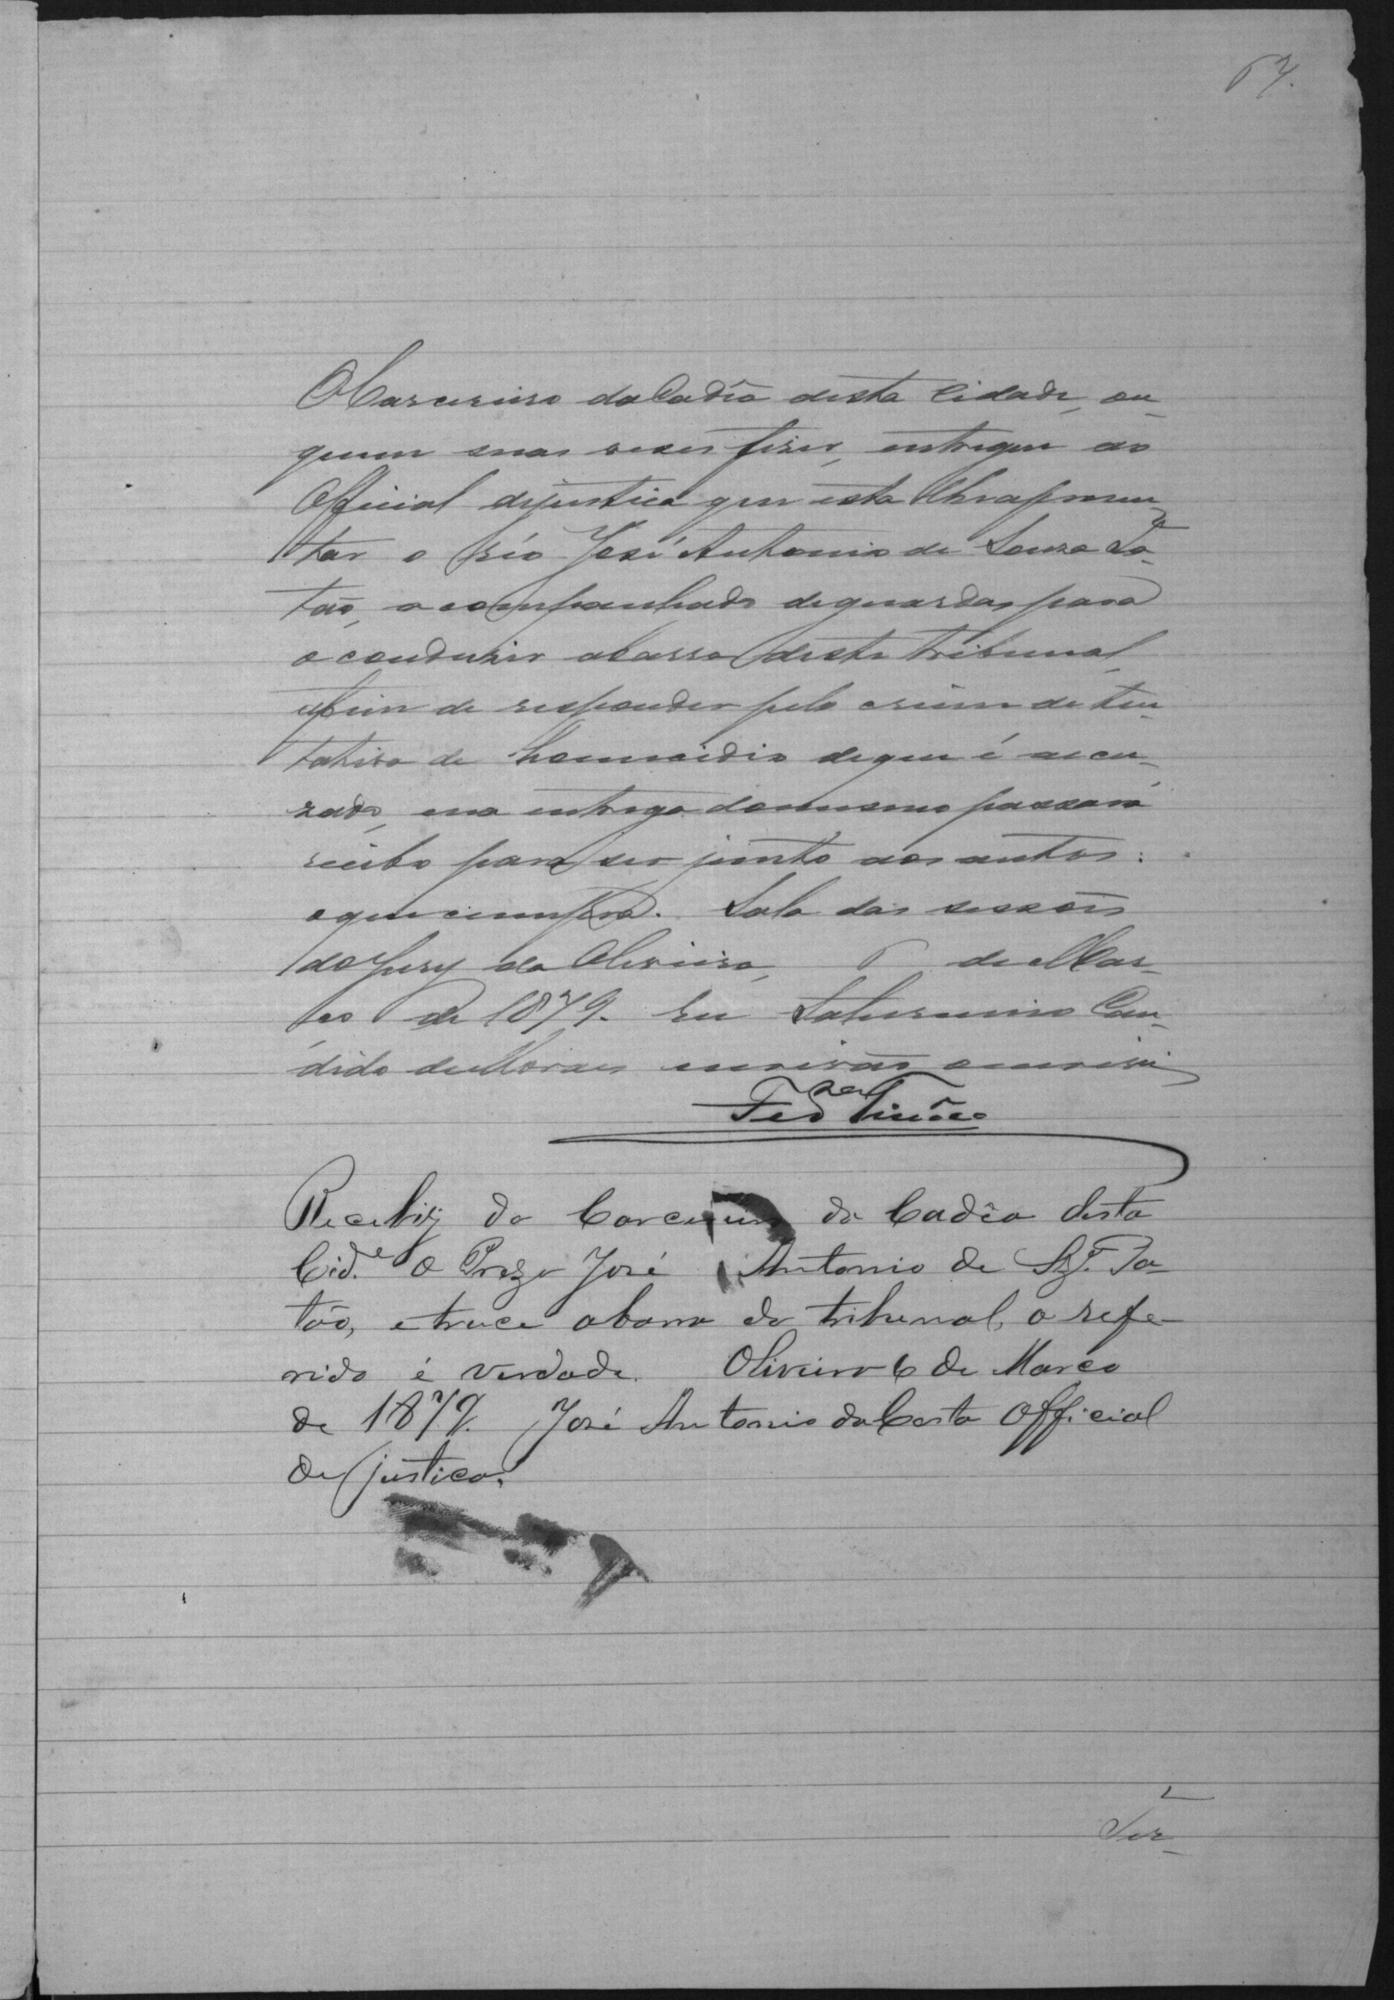 67.
O Carcereiro da Cadêa desta Cidade, ou
quem suas vezes fizer, entregue ao
Official dejustica que esta lhe apresen-
tar o réo José Antonio de Souza Pa-
tão, acompanhado deguardas para
o conduzir abarra deste tribunal,
afim de responder pelo crime de ten-
tativa de homicidio deque é accu-
zado, ena entrega domesmo passará
recibo para ser junto aos autos:
oque cumpra. Sala das sessões
doJury da Oliveira, 6 de Mar-
ço de 1879. Eu Saturnino Can-
dido deMoraes escrivão oescrevi
Recebij do Carcereiro da Cadêa desta
Cid.e o Prezo José Antonio de Sz.ª Pa-
tão, etruce abarra do tribunal, o refe-
rido é verdade. Oliveira 6 de Março
de 1879. José Antonio daCosta Official
de justica.